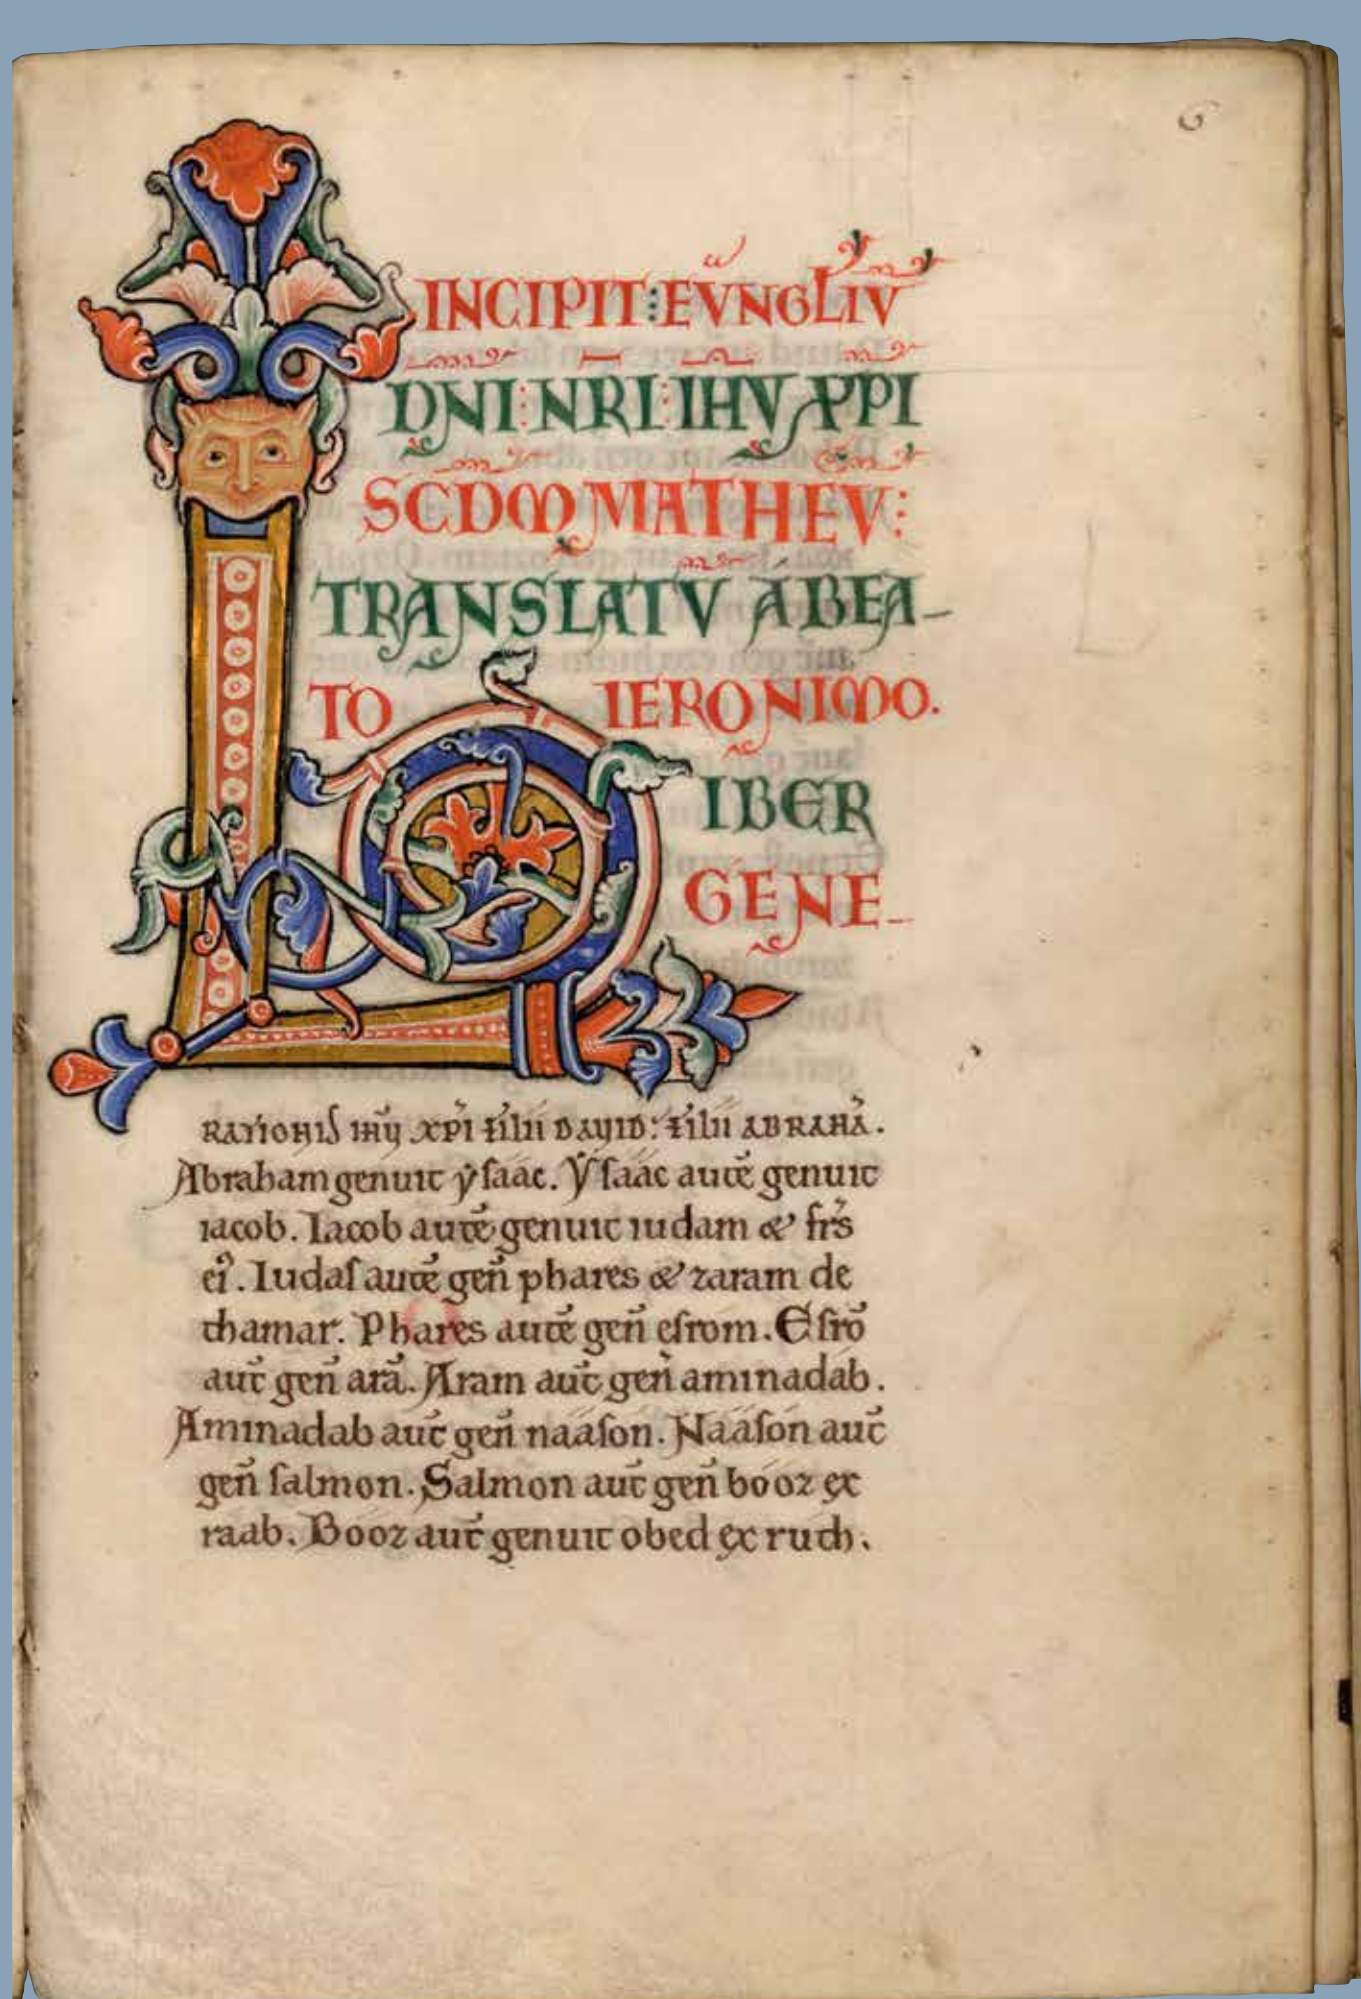 6
INCIPIT: EṼNGLIṼ
D̄NI: N̄RI: IH̄V X̄PI
SCD̄M MATHEV̄:
TRANSLATV̄ A BEA-
TO IERONIMO.
L IBER
GENE-
RATIONIS IHŪ XP̄I FILII DAVID: FILII ABRAHĀ.
Abraham genuit ẏsaac. Ẏsaac autē genuit
iacob. Iacob autē genuit iudam & fr̄s
ei᾽. Iudas autē gen̄ phares & zaram de
thamar. Phares autē gen̄ esrom. Esrō
aut̄ gen̄ arā. Aram aut̄ gen̄ aminadab.
Aminadab aut̄ gen̄ naáson. Naáson aut̄
gen̄ salmon. Salmon aut̄ gen̄ booz ex
raab. Booz aut̄ genuit obed ex ruth.